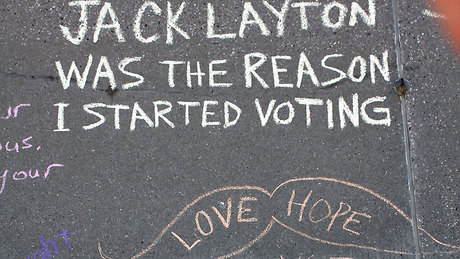 JACK LAYTON
WAS THE REASON
I STARTED VOTING
your
LOVE HOPE